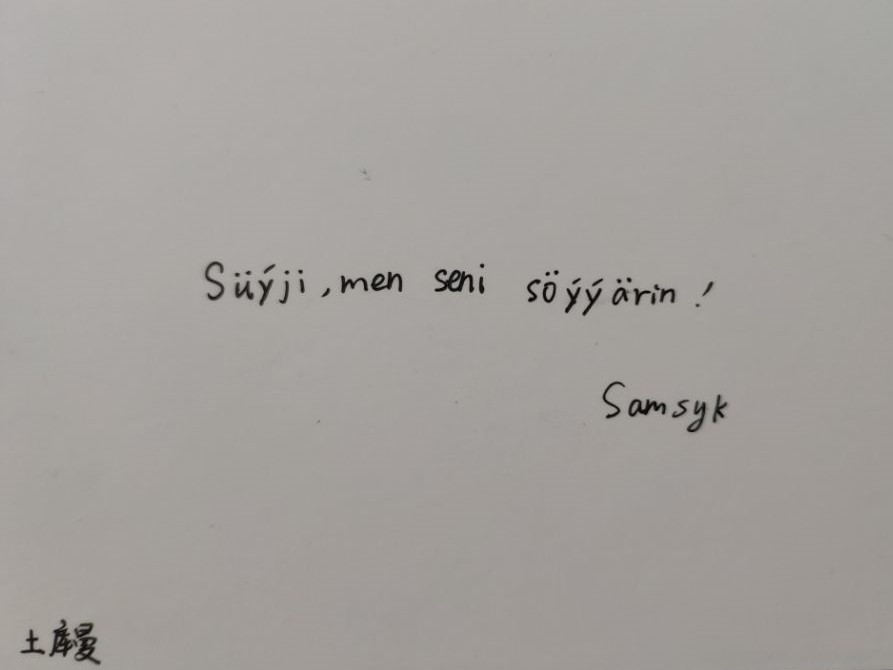 Süýji, men seni söýýärin!
Samsyk
土库曼